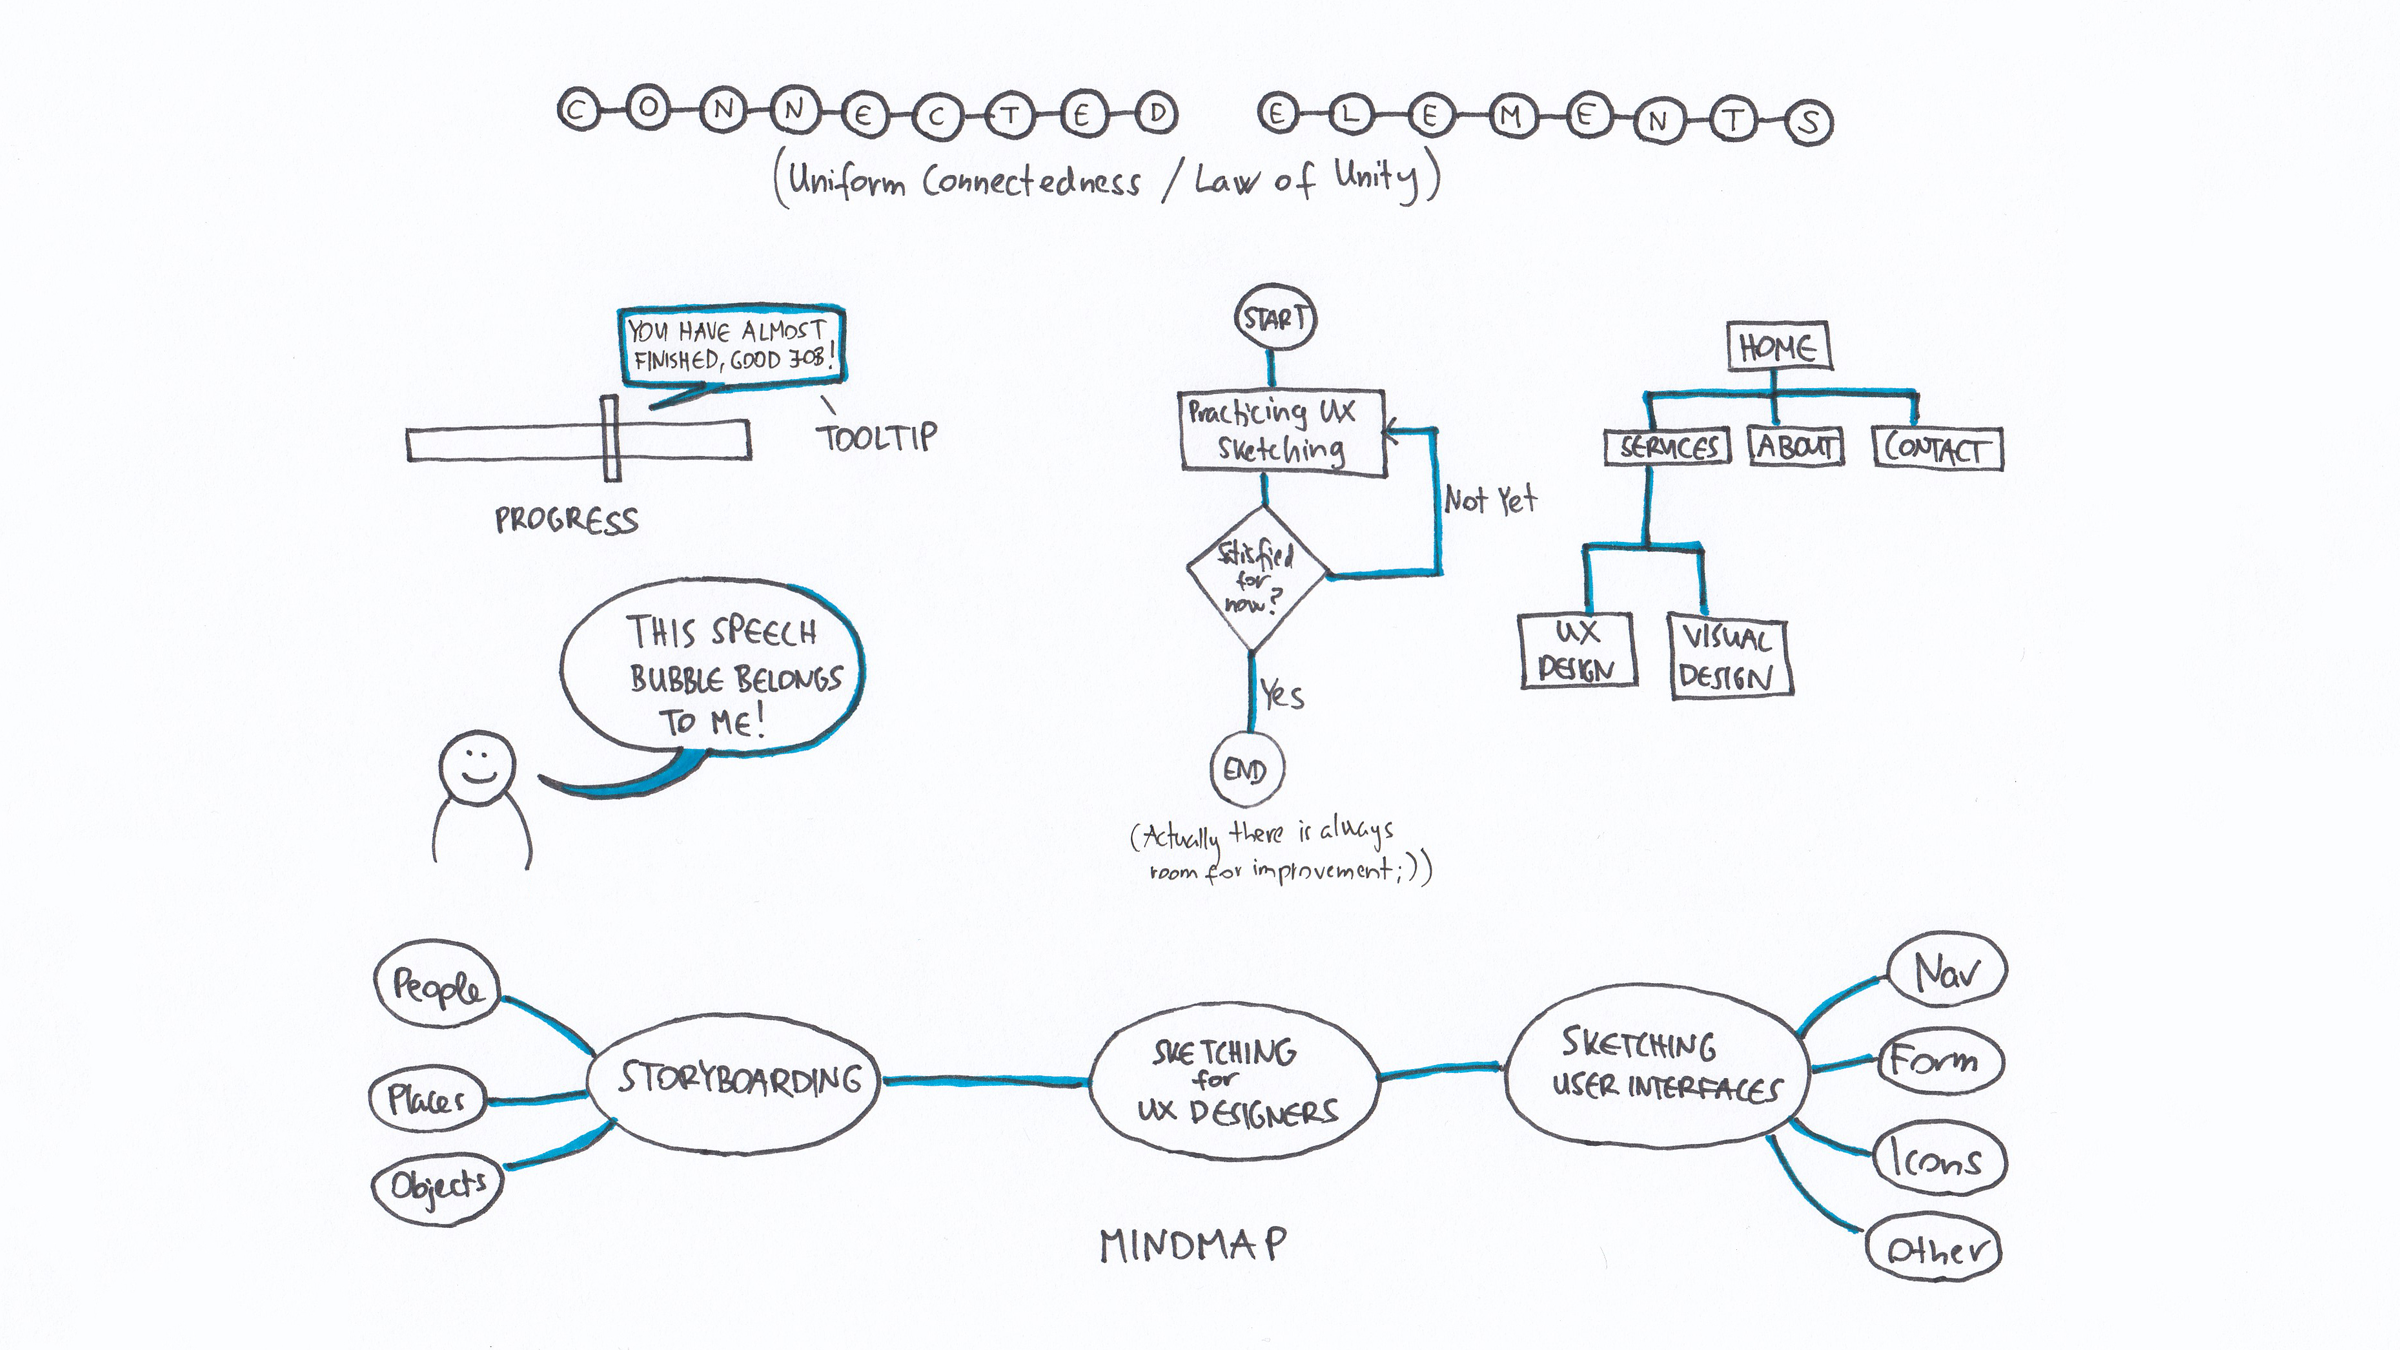 CONNECTED ELEMENTS
(Uniform Connectedness / Law of Unity)
YOU HAVE ALMOST
FINISHED, GOOD JOB!
TOOLTIP
PROGRESS
THIS SPEECH
BUBBLE BELONGS
TO ME!
START
Practicing UX
Sketching
Not Yet
Satisfied
for
now?
Yes
END
(Actually there is always
room for improvement;))
HOME
SERVICES
ABOUT
CONTACT
UX
DESIGN
VISUAL
DESIGN
People
Places
Objects
STORYBOARDING
SKETCHING
for
UX DESIGNERS
SKETCHING
USER INTERFACES
Nav
Form
Icons
Other
MINDMAP